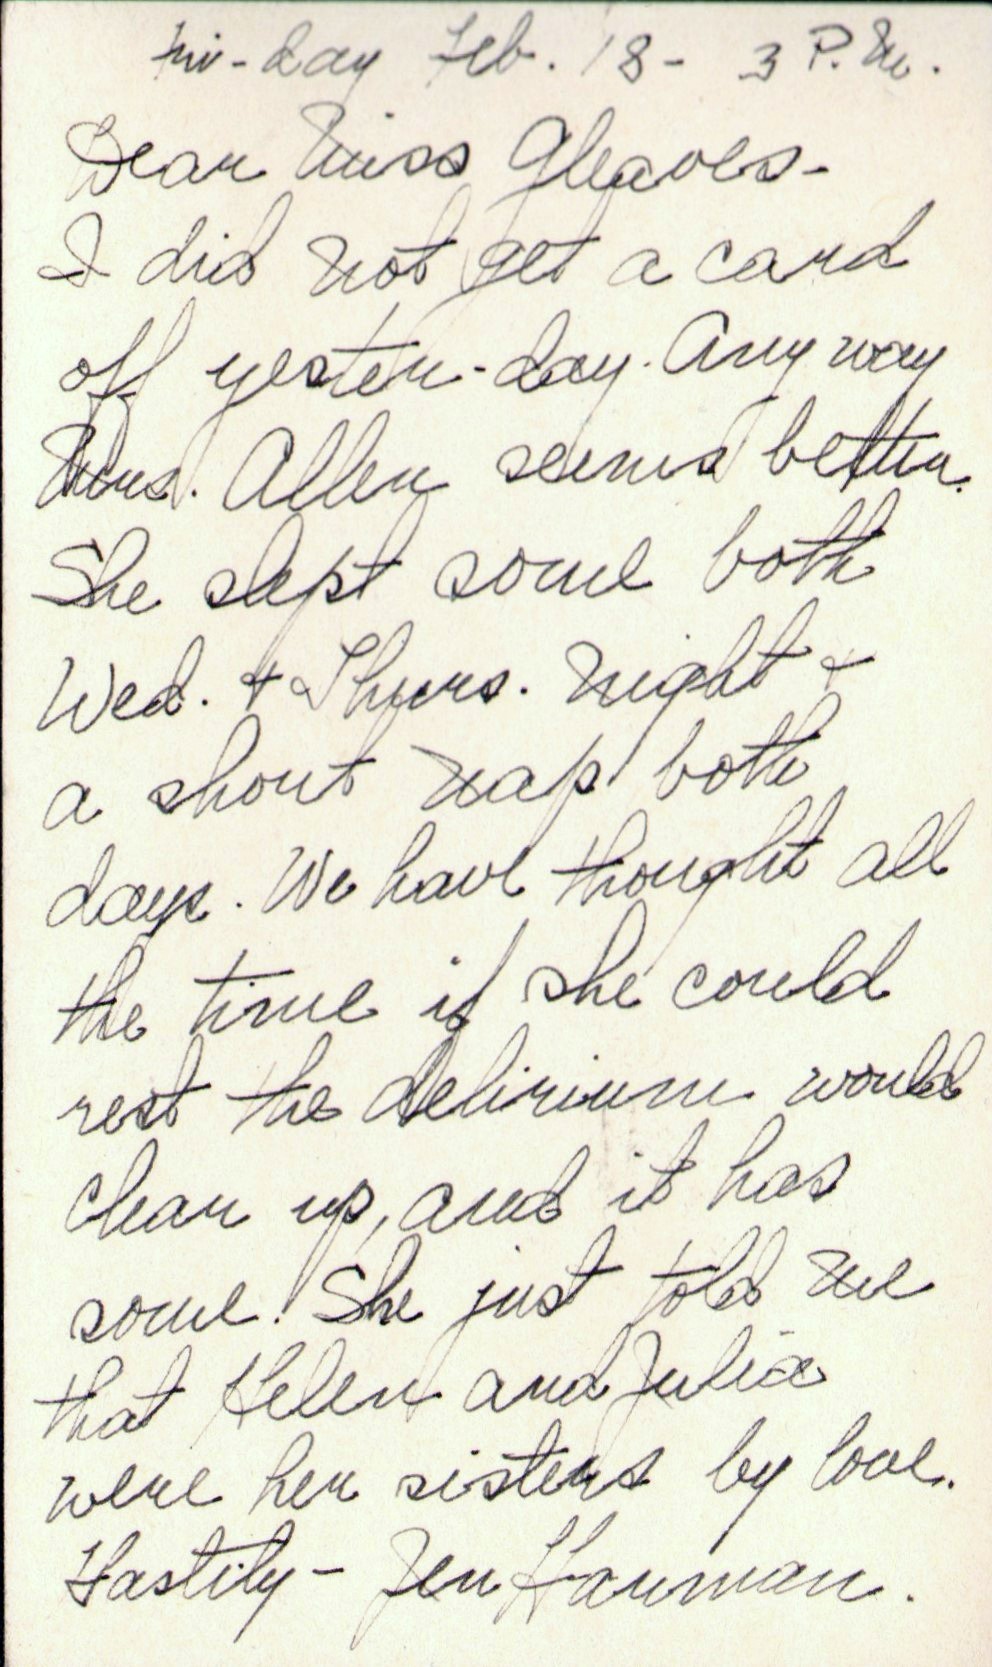 Fri-day Feb. 18- 3 P.M.
Dear Miss Gleaves-
I did not get a card
off yester-day. Any way
Mrs. Allen seems better.
She slept some both
Wed. + Thurs. night +
a short nap both
days. We have thought all
the time if she could
rest the delirium would
clear up, and it has
some. She just told me
that Helen and Julia
were her sisters by love.
Hastily- Jen Harman.